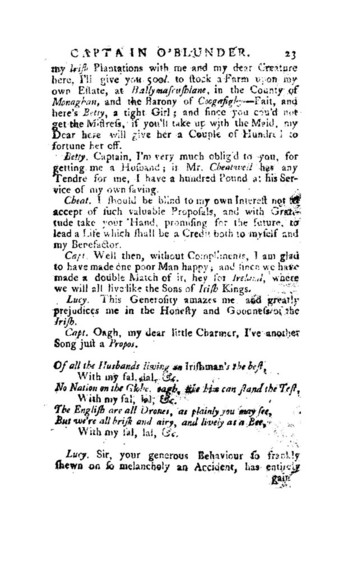 CAPTAIN O'BLUNDER. 23
my Irish Plantations with me and my dear Creature
here, I'll give you 500l. to stock a Farm upon my
own Estate, at Ballymascushlane, in the County of
Monaghan, and the Barony of Coogafighy—Fait, and
here's Betty, a tight Girl; and since you cou'd not
get the Mistress, if you'll take up with the Maid, my
Dear here will give her a Couple of Hundred to
fortune her off.
Betty. Captain, I'm very much oblig'd to you, for
getting me a Husband; if Mr. Cheatwell has any
Tendre for me, I have a hundred Pound at his Ser-
vice of my own saving.
Cheat. I should be blind to my own Interest not to
accept of such valuable Proposals, and with Grati-
tude take your Hand, promising for the future, to
lead a Life which shall be a Credit both to myself and
my Benefactor.
Capt. Well then, without Compliments, I am glad
to have made one poor Man happy; and since we have
made a double Match of it, hey for Ireland, where
we will all live like the Sons of Irish Kings.
Lucy. This Generosity amazes me and greatly
prejudices me in the Honesty and Goodness of the
Irish.
Capt. Oagh, my dear little Charmer, I've another
Song just a Propos.
Of all the Husbands living an Irishman's the best,
With my fal, lal, &c.
No Nation on the Globe. like him can stand the Test,
With my fal, lal, &c.
The English are all Drones, as plainly you may see,
But we're all brisk and airy, and lively as a Bee,
With my fal, lal, &c.
Lucy. Sir, your generous Behaviour so frankly
shewn on so melancholy an Accident, has entirely
gain